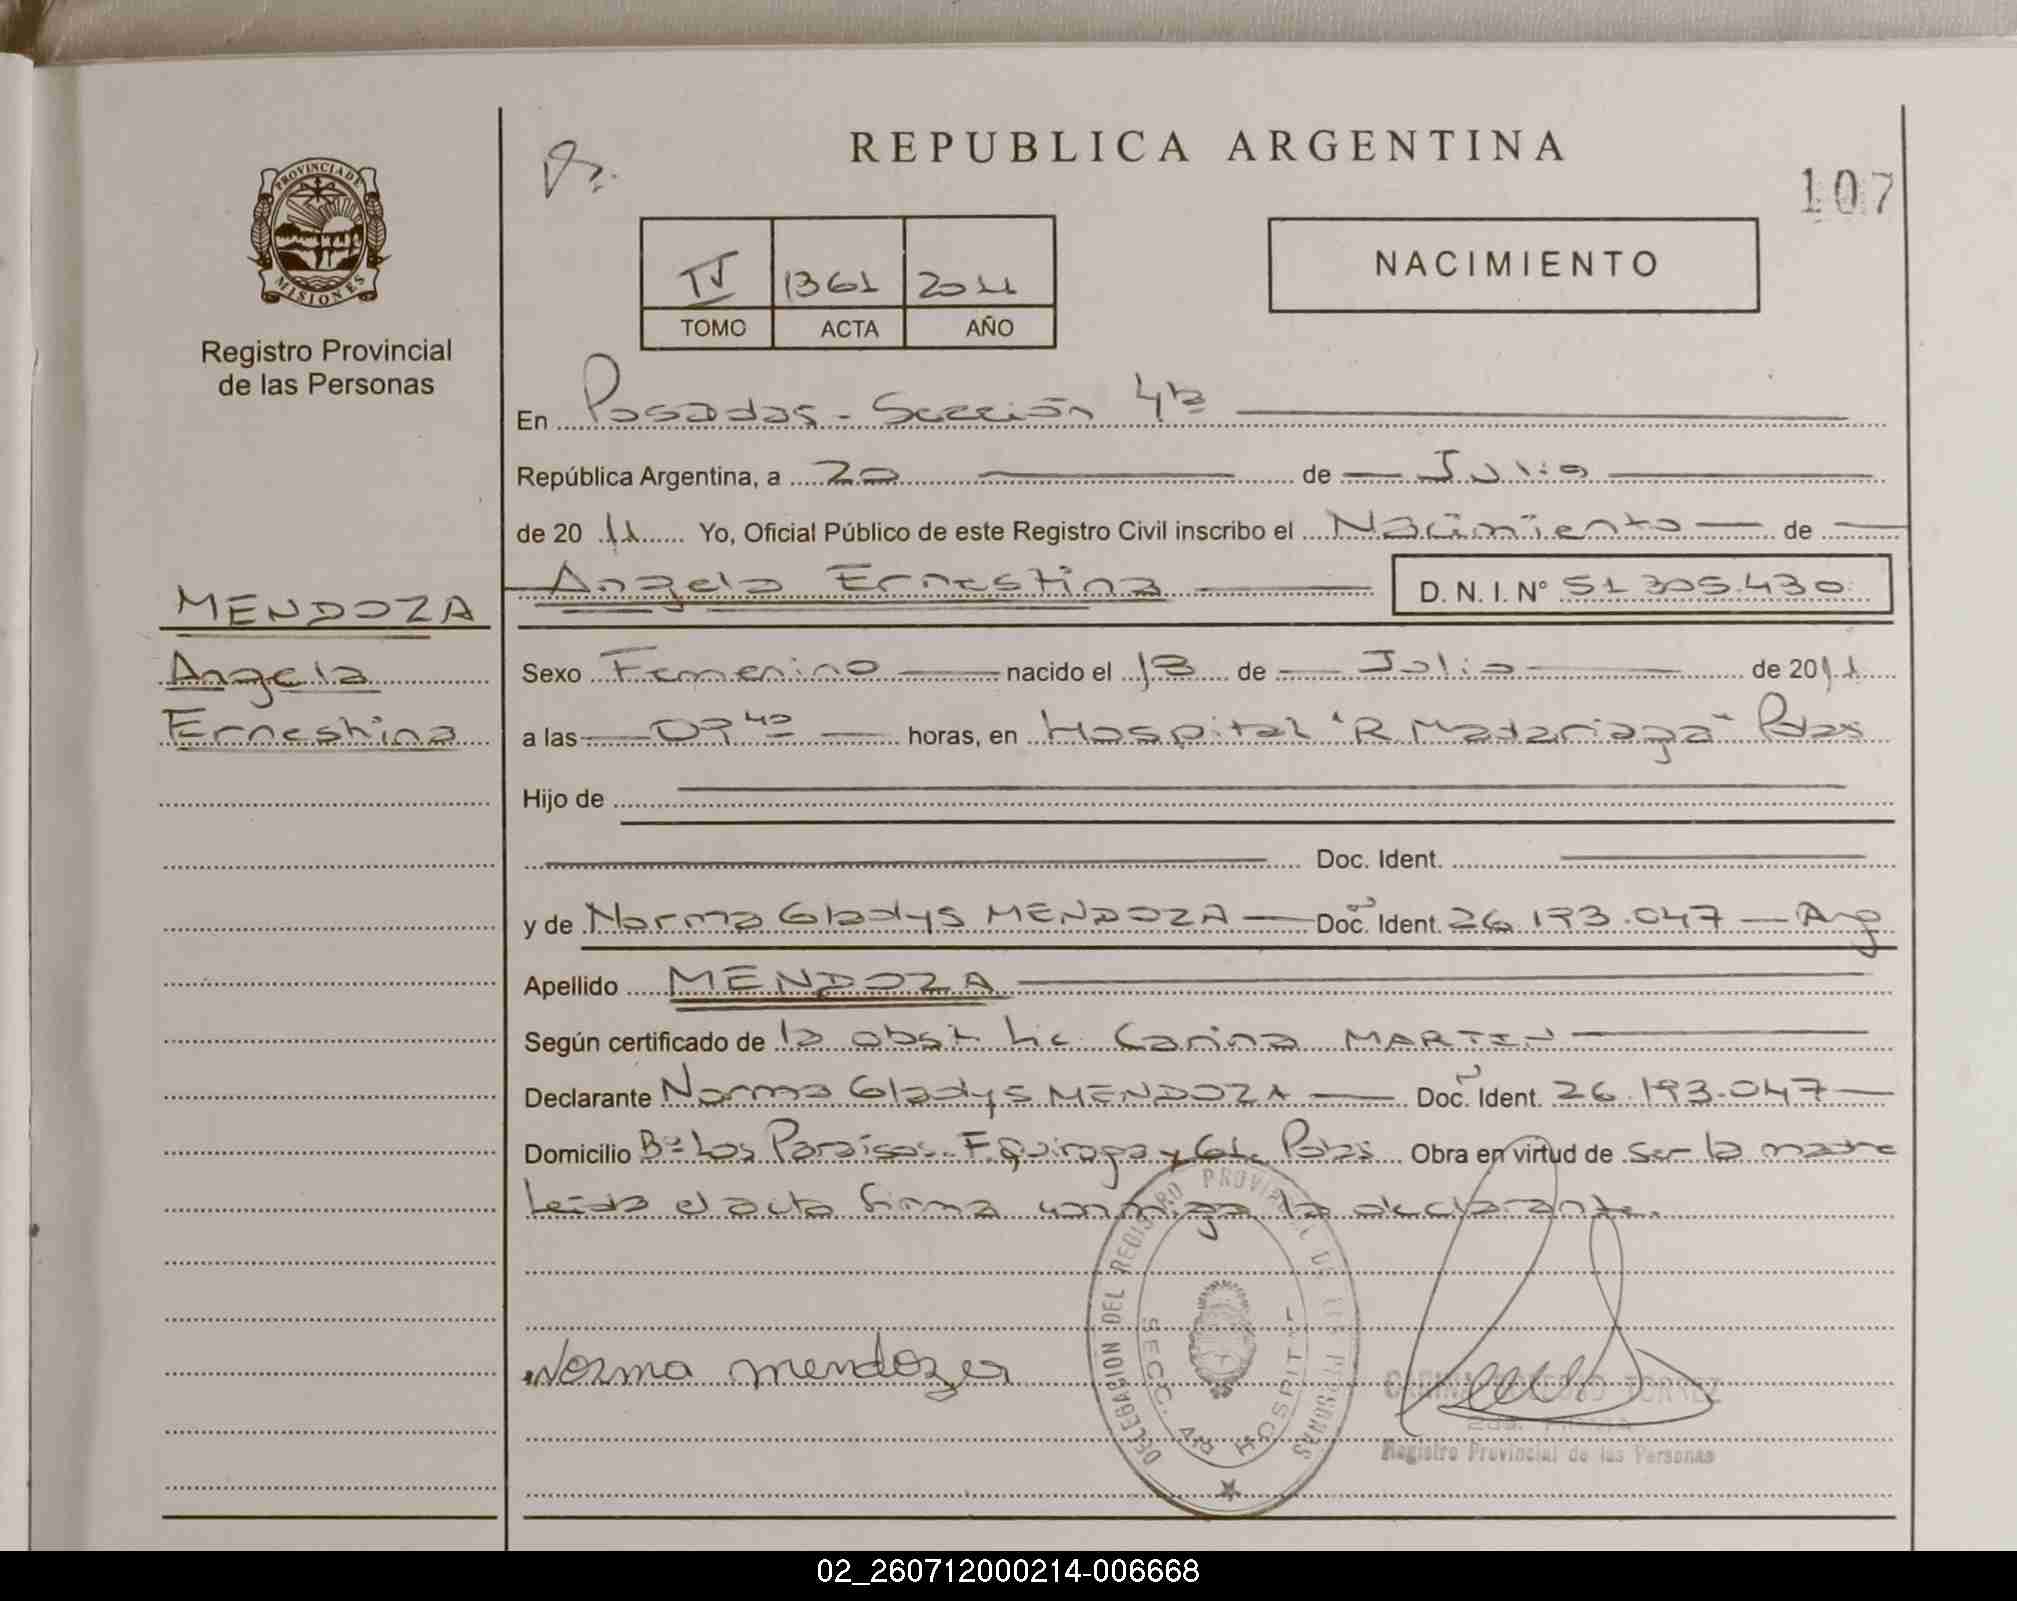 REPUBLICA ARGENTINA
107
PROVINCIA DE MISIONES
Registro Provincial
de las Personas
IV 1361 2011
TOMO ACTA AÑO
NACIMIENTO
En Posadas - Sección 4ta
República Argentina, a 20 de Julio
de 2011 Yo, Oficial Público de este Registro Civil inscribo el Nacimiento de
Angela Ernestina D. N. I. N° 51.305.430
MENDOZA
Angela
Ernestina
Sexo Femenino nacido el 13 de Julio de 2011
a las 07 40 horas, en Hospital "R. Madariaga" Pdas
Hijo de
Doc. Ident.
y de Norma Gladys MENDOZA Doc. Ident. 26.193.047 - Arg
Apellido MENDOZA
Según certificado de la obst. Lic. Carina MARTEN
Declarante Norma Gladys MENDOZA Doc. Ident. 26.193.047
Domicilio B° Los Paraisos - F. Quiroga y Pdas Obra en virtud de ser la madre
Leída el acta firma conmigo la declarante.
Norma mendoza
DELEGACION DEL REGISTRO PROVINCIAL DE LAS PERSONAS
SECC. 4ta HOSPITAL
TORREZ
Registro Provincial de las Personas
02_260712000214-006668